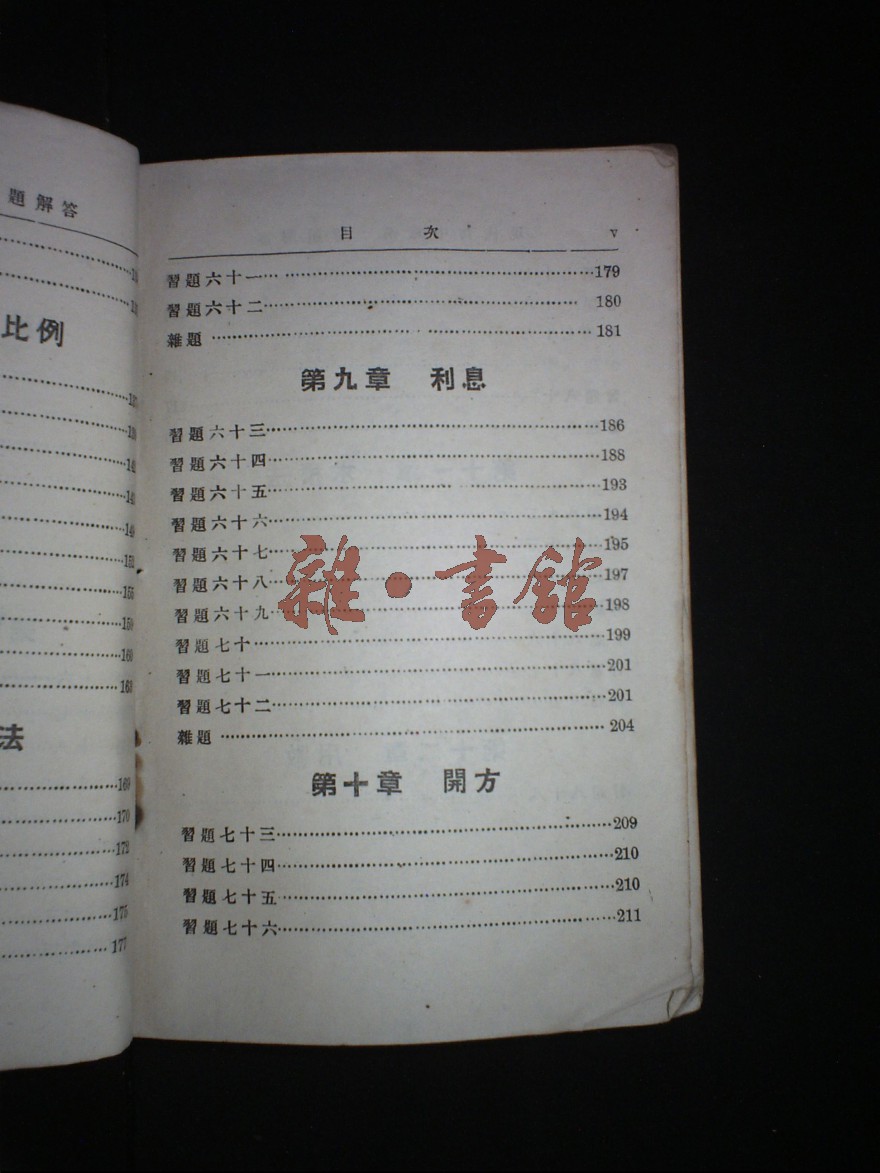 題解答
比例
法
169
170
172
174
175
177
目 次 v
習題六十一……179
習題六十二……180
雜題……181
第九章 利息
習題六十三……186
習題六十四……188
習題六十五……193
習題六十六……194
習題六十七……195
習題六十八……197
習題六十九……198
習題七十……199
習題七十一……201
習題七十二……201
雜題……204
第十章 開方
習題七十三……209
習題七十四……210
習題七十五……210
習題七十六……211
雜·書館